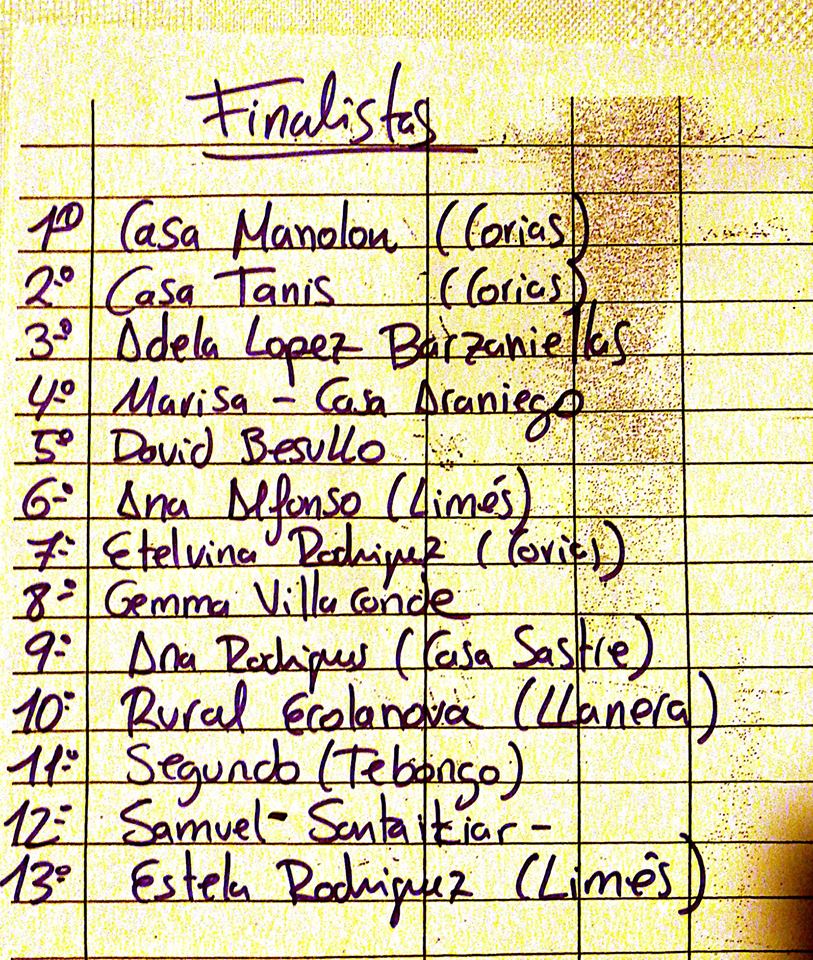 Finalistas
1º Casa Manolon (Corias)
2º Casa Tanis (Corias)
3º Adela Lopez Barzaniellas
4º Marisa - Casa Araniego
5º David Besullo
6º Ana Alfonso (Limés)
7º Etelvina Rodriguez (Corias)
8º Gemma Villa Conde
9º Ana Rodriguez (Casa Sastre)
10º Rural Ecolanova (LLanera)
11º Segundo (Tebongo)
12º Samuel -
13º Estela Rodriguez (Limés)